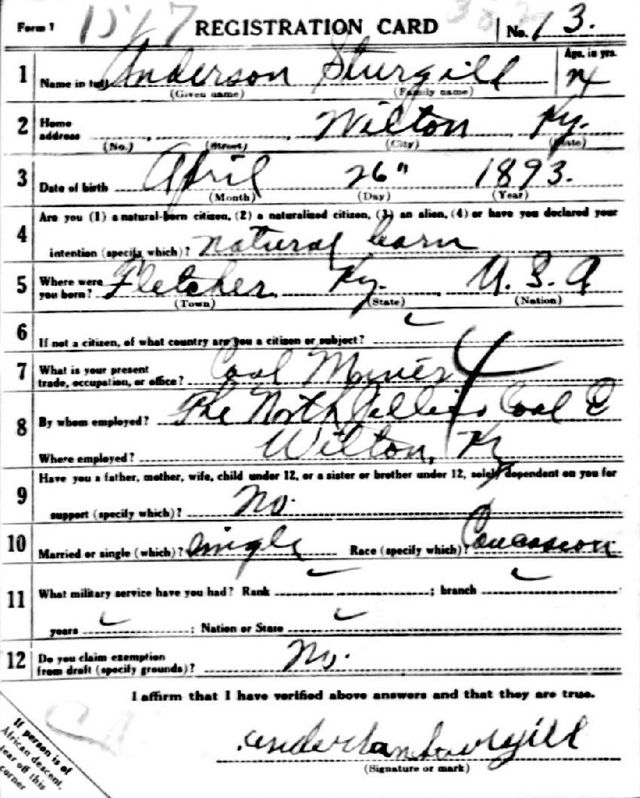 Form 1 1517 REGISTRATION CARD No. 13.
1 Name in full Anderson Sturgill Age, in yrs.
(Given name) (Family name)
2 Home address Wilton Ky.
(No.) (Street) (City) (State)
3 Date of birth April 26" 1893.
(Month) (Day) (Year)
4 Are you (1) a natural-born citizen, (2) a naturalized citizen, (3) an alien, (4) or have you declared your
intention (specify which)? natural born
5 Where were you born? Fletcher Ky. U. S. A
(Town) (State) (Nation)
6 If not a citizen, of what country are you a citizen or subject?
7 What is your present trade, occupation, or office? Coal
8 By whom employed? The North Coal C
Where employed? Wilton, Ky
9 Have you a father, mother, wife, child under 12, or a sister or brother under 12, solely dependent on you for
support (specify which)? No.
10 Married or single (which)? Single Race (specify which)?
11 What military service have you had? Rank ; branch
years ; Nation or State
12 Do you claim exemption from draft (specify grounds)? No.
I affirm that I have verified above answers and that they are true.
(Signature or mark)
If person is of
African descent,
tear off this
corner